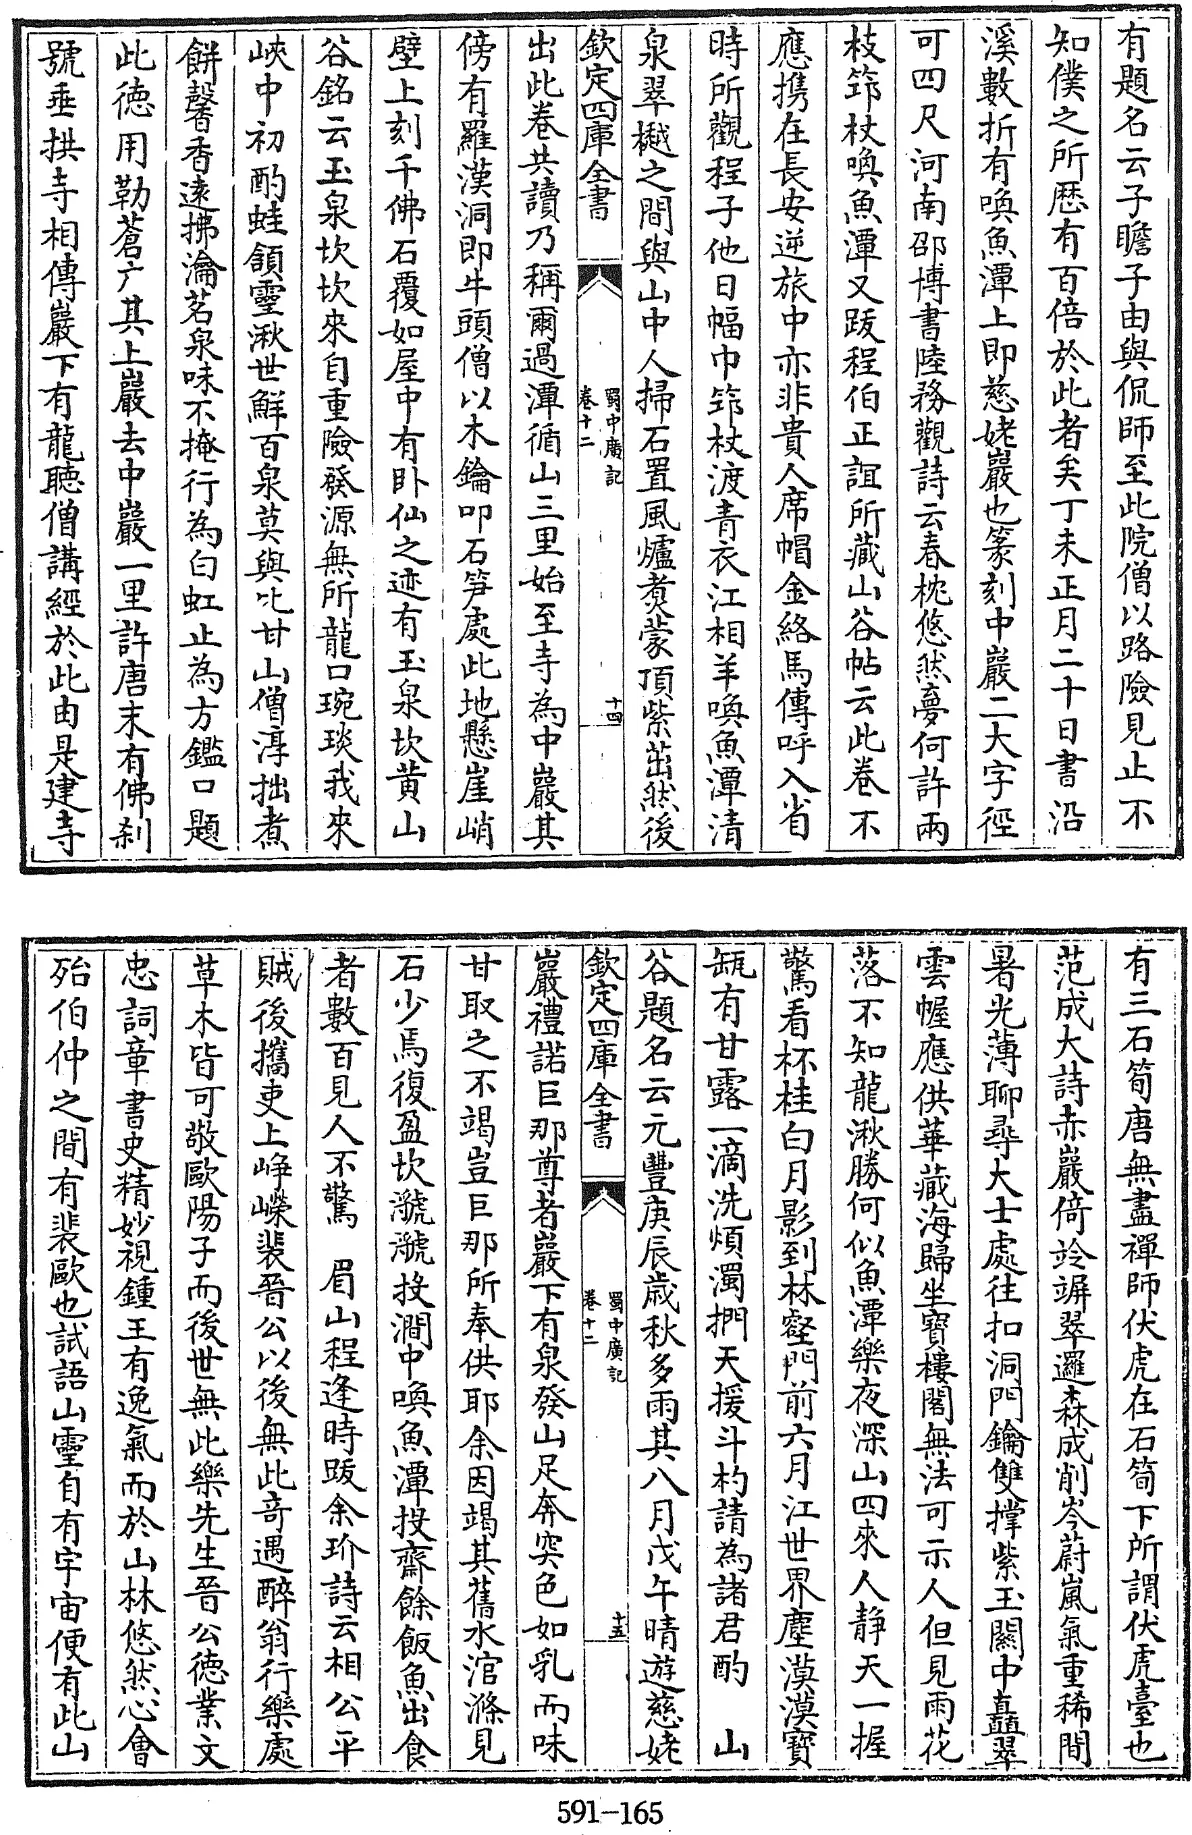 有題名云子瞻子由與侃師至此院僧以路險見止不
知僕之所歷有百倍於此者矣丁未正月二十日書沿
溪數折有喚魚潭上即慈姥巖也篆刻中巖二大字徑
可四尺河南邵博書陸務觀詩云春枕悠然夢何許兩
枝筇杖喚魚潭又跋程伯正誼所藏山谷帖云此卷不
應携在長安逆旅中亦非貴人席帽金絡馬傳呼入省
時所觀程子他日幅巾筇杖渡青衣江相羊喚魚潭清
泉翠樾之間與山中人掃石置風爐煑蒙頂紫茁然後
欽定四庫全書
蜀中廣記
卷十二
十四
出此卷共讀乃稱爾過潭循山三里始至寺為中巖其
傍有羅漢洞即牛頭僧以木鑰叩石笋處此地懸崖峭
壁上刻千佛石覆如屋中有卧仙之迹有玉泉坎黄山
谷銘云玉泉坎坎來自重險發源無所龍口琬琰我來
峽中初酌蛙頷靈湫世鮮百泉莫與比甘山僧淳拙煮
餅馨香逺拂瀹茗泉味不掩行為白虹止為方鑑口題
此德用勒蒼广其上巖去中巖一里許唐末有佛刹
號垂拱寺相傳巖下有龍聽僧講經於此由是建寺
有三石筍唐無盡禪師伏虎在石筍下所謂伏虎臺也
范成大詩赤巖倚竛竮翠邏森成削岑蔚嵐氣重稀間
暑光薄聊尋大士處往扣洞門鑰雙撑紫玉關中矗翠
雲幄應供華藏海歸坐寶樓閣無法可示人但見雨花
落不知龍湫勝何似魚潭樂夜深山四來人静天一握
驚看杯桂白月影到林壑門前六月江世界塵漠漠寳
缾有甘露一滴洗煩濁捫天援斗杓請為諸君酌　山
谷題名云元豐庚辰歲秋多雨其八月戊午晴遊慈姥
欽定四庫全書
蜀中廣記
卷十二
十五
巖禮諾巨那尊者巖下有泉發山足奔突色如乳而味
甘取之不竭豈巨那所奉供耶余因竭其舊水涫滌見
石少焉復盈坎㶁㶁投澗中喚魚潭投齋餘飯魚出食
者數百見人不驚　眉山程逢時跋余玠詩云相公平
賊後攜吏上崢嶸裴晉公以後無此奇遇醉翁行樂處
草木皆可敬歐陽子而後世無此樂先生晉公德業文
忠詞章書史精妙視鍾王有逸氣而於山林悠然心會
殆伯仲之間有裴歐也試語山靈自有宇宙便有此山
591-165